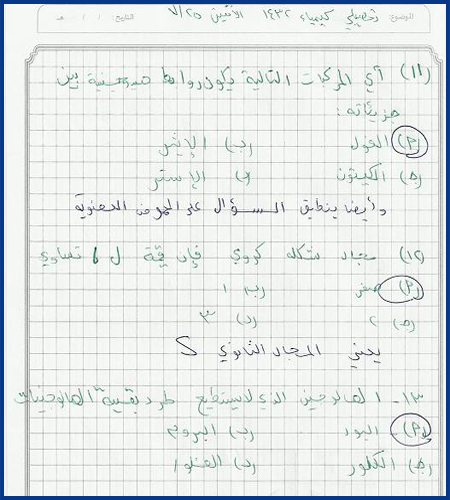 الموضوع: تحصيلي كيمياء ١٤٣٢ الاثنين ٧/٢٥ التاريخ: / / هـ
(١١) أي المركبات التالية يكون روابط هيدروجينية بين
جزيئاته:
(أ) الغول (ب) الإيثر
(ج) الكيتون (د) الإستر
وأيضا ينطبق السؤال على الحموض العضوية
(١٢) مجال شكله كروي فإن قيمة ل تساوي
(أ) صفر (ب) ١
(ج) ٢ (د) ٣
يعني المجال الثانوي S
١٣- الهالوجين الذي لا يستطيع طرد بقية الهالوجينات
(أ) اليود (ب) البروم
(ج) الكلور (د) الفلور